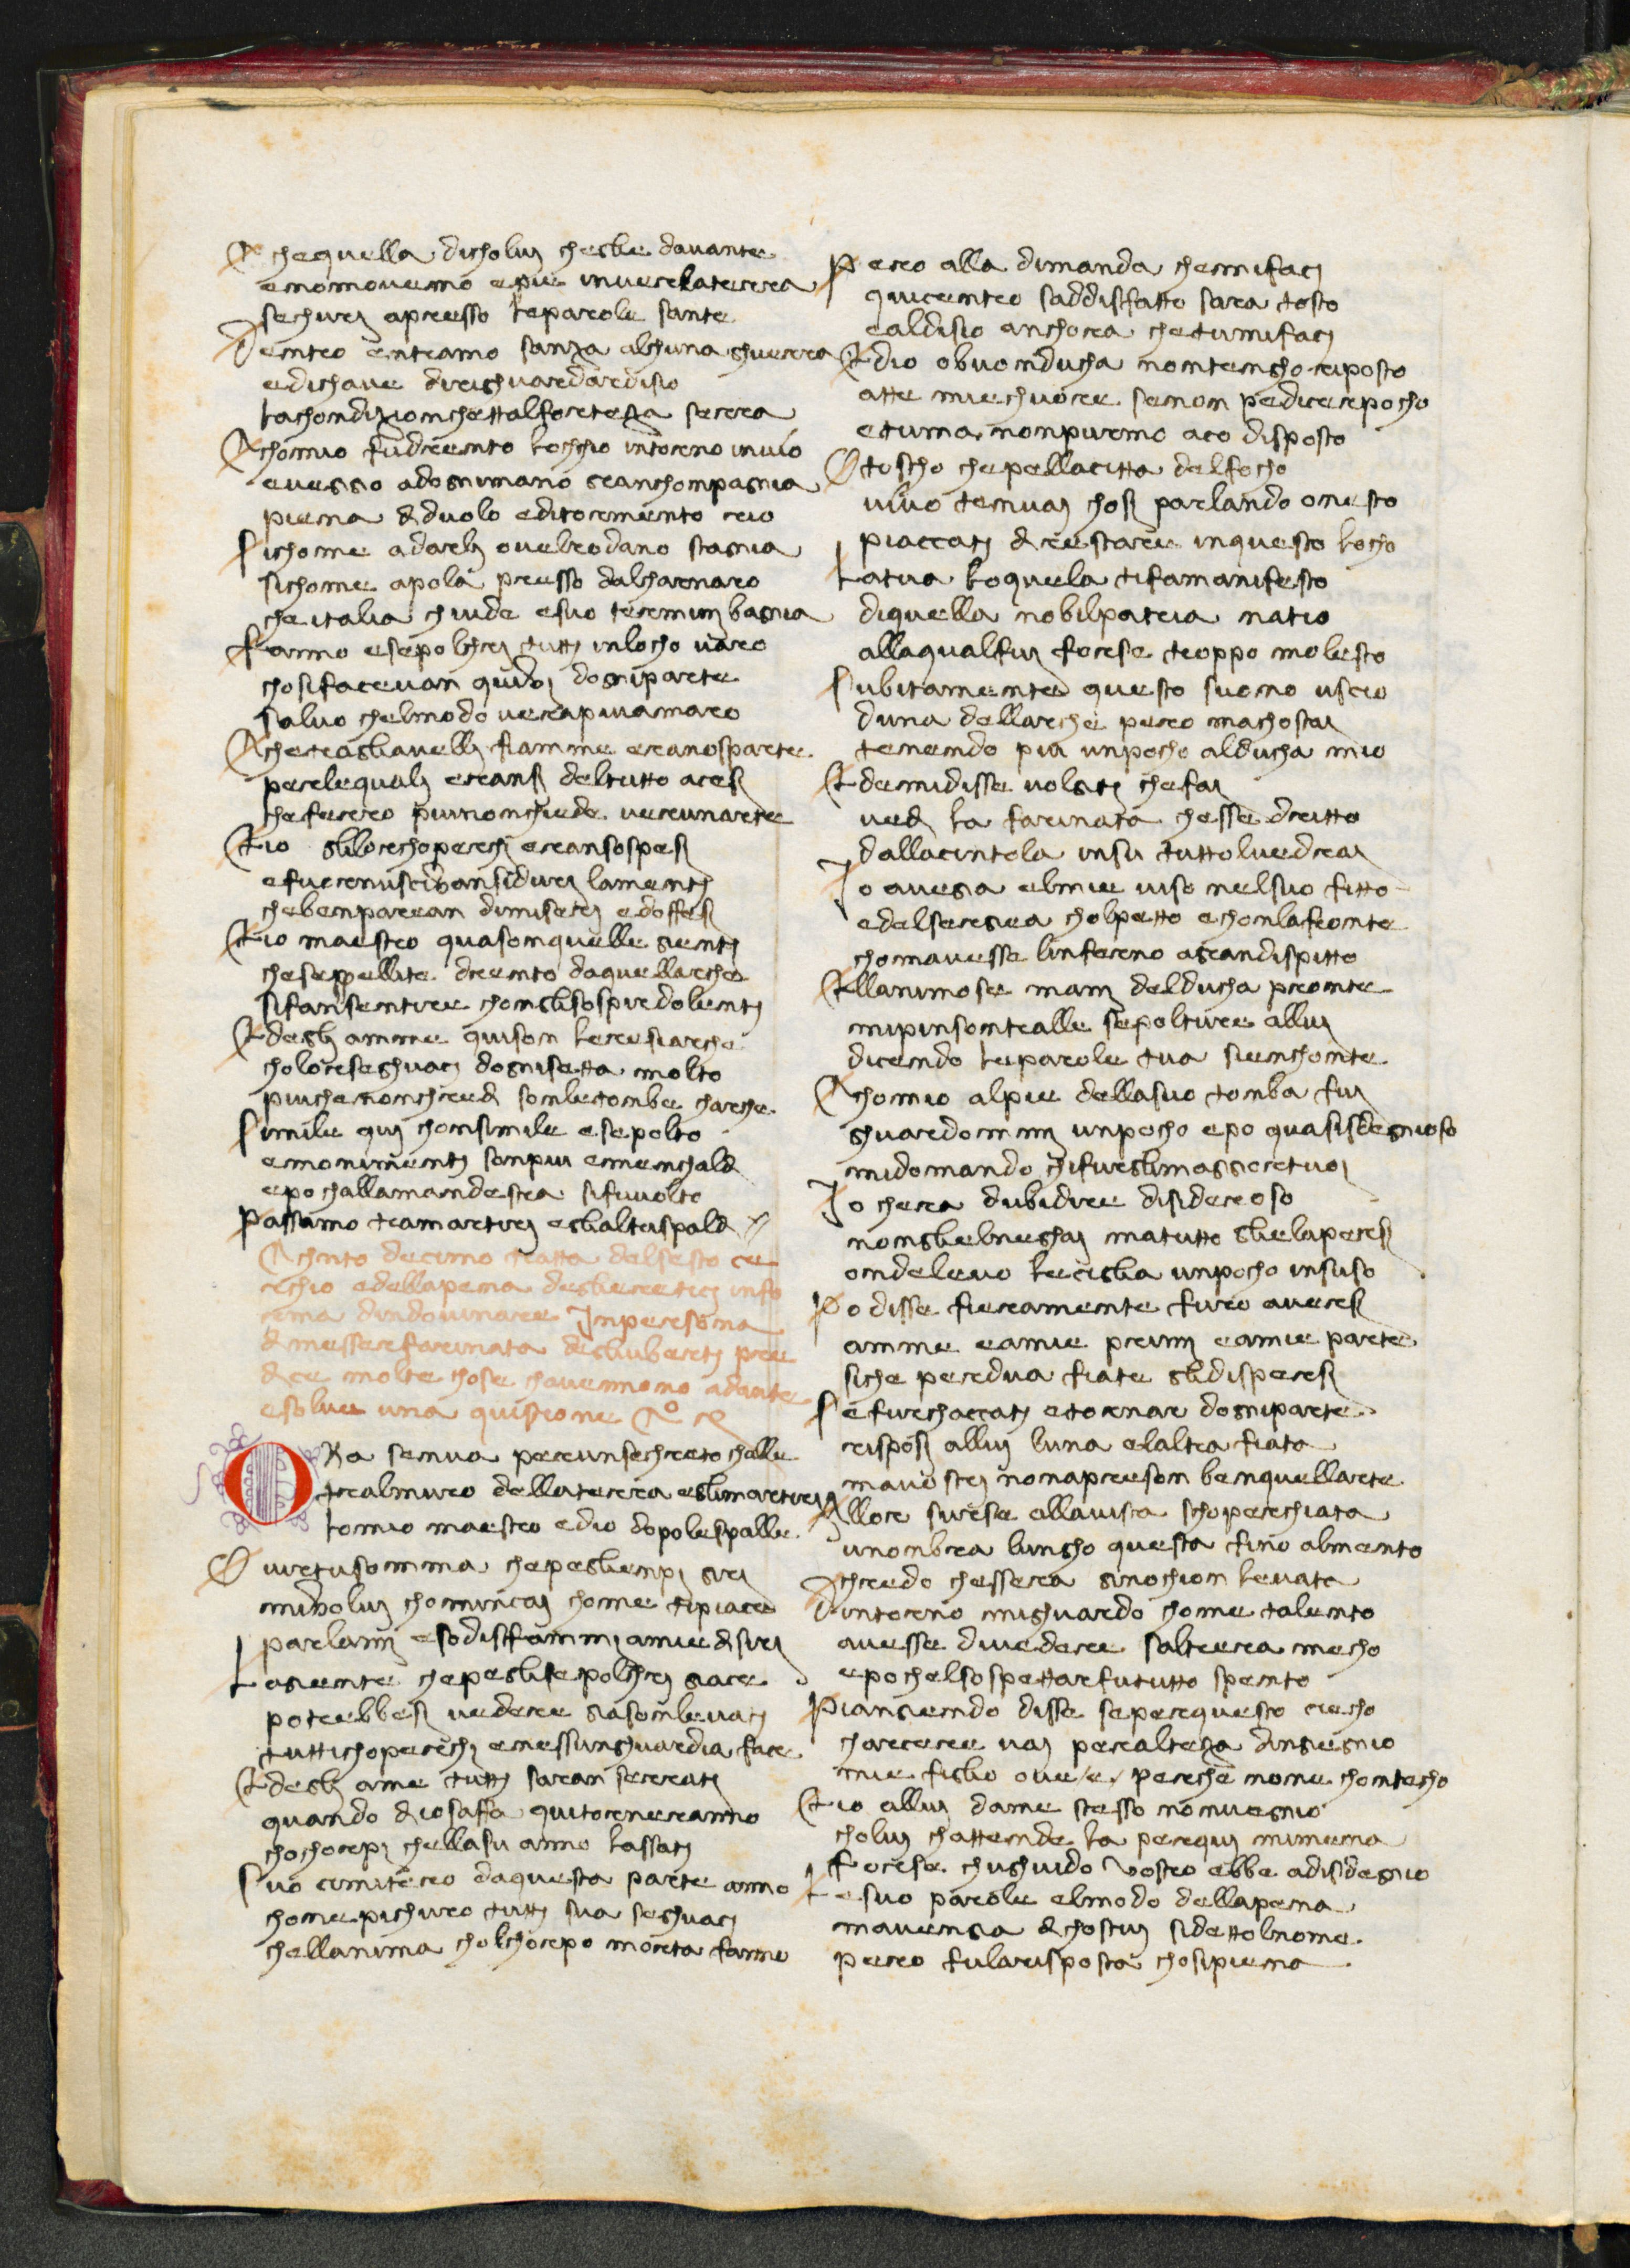 Che quella dicholuj cheglie davante
enomovemo epie inverlaterra
sechurj apresso leparole sante
Dentro entramo sanza alchuna ghuerra
edichave dirighuardardisio
lachondizionchettalforteza serra
Chomio fudrento lochio intorno invio
eveggo adognimano granchompagnia
piena di duolo editormento rio
Sichome adarlj ovelrodano stagnia
sichome apola presso dalcharnaro
che italia chiude esuo terminj bagnia
fanno esepolchrj tuttj inlocho varo
chosifacevan quivj dogniparte
salvo chelmodo verapiuamaro
Chetragliavellj fiamme eranosparte
perlequalj eransj deltutto acesj
cheferro piunonchiede verunarte
Tio glilorchoperchj eransospesj
efuornuscivansidurj lamentj
chebenparean dimiserj edoffesj
Tio maestro quasonquelle gientj
cheseppellite drento daquellarche
sifansentire chonglisospirdolentj
Edeglj amme quison leresiarche
choloroseghuacj dognisetta molto
piuchenonchredj sonletonbe charche
Simile quj chonsimile esepolto
emonimentj sonpiu emenchaldj
epo challamandestra sifuvolto
Passamo tramartirj eglialtispaldj
Chanto decimo tratta delsesto ce
rchio edellapena degliereticj info
rma dindovinare Inpersona
di messerefarinata degliubertj pre
dice molte chose chavennono adante
esolve una quistione Co x
ORa senva perunsechreto challe
tralmuro dellaterra eglimartirj
lomio maestro edio dopolespalle
O virtusomma chepegliempj girj
mivolvj chominciaj chome tipiace
parlamj esodisfammj amie disirj
Lagiente chepeglisepolchrj giace
potrebbesj vedere giasonlevatj
tuttichoperchj enessunghuardia face
Edeglj ame tuttj saran serratj
quando diosaffa quitorneranno
chochorpj chellasu anno lassatj
Suo cimitero daquesta parte anno
chomepichuro tuttj sua seghuacj
chellanima cholchorpo morta fanno
Pero alla dimanda chemmifacj
quicentro saddisfatto sara tosto
ealdisio anchora chetumifacj
Edio obuonducha nontengho riposto
atte miechuore senon pedicerpocho
etuma nonpurmo aco disposto
O toscho chepellacitta delfocho
vivo tenvaj chosj parlando onesto
piacciatj di restare inquesto locho
Latua loquela tifamanifesto
diquella nobilpatria natio
allaqualfuj forse troppo molesto
Subitamente questo suono uscio
duna dellarche pero machostaj
temendo piu unpocho alducha mio
Edemidisse volgitj chefaj
vedj la farinata chesse dritto
dallacintola insu tuttolvedraj
Io avega elmie viso nelsuo fitto
edelsergiea cholpetto echonlafronte
chomavesse linferno agrandispitto
Ellanimose manj delducha pronte
mipinsontralle sepolture alluj
dicendo leparole tua sienchonte
Chomio alpie dellasuo tomba fuj
ghuardommj unpocho epo quasisdegnioso
midomando chifureglimaggiortuoj
Io chera dubidire disideroso
nonglielneghaj matutto glielapersj
ondelevo leciglia unpocho insuso
Po disse fieramente furo aversj
amme eamie primj eamie parte
siche perdua fiate glidispersj
Sefurchacciatj etornar dogniparte
risposj alluj luna elaltra fiata
mavostrj nonapreson benquellarte
Allor surse allavista schoperchiata
unonbra lungho questa fino almento
chredo chessera ginochion levata
Dintorno mighuardo chome talento
avesse divedere saltrera mecho
epochelsospettarfututto spento
Piangiendo disse seperquesto ciecho
charcere vaj peralteza dingiegnio
mie figlio ove/e/ perche none chontecho
Tio alluj dame stesso nonvegnio
choluj chattende la perquj mimena
forse chughuido vostro ebbe adisdegnio
Lesuo parole elmodo dellapena
mavengia di chostuj sidettolnome
pero fularisposta chosipiena